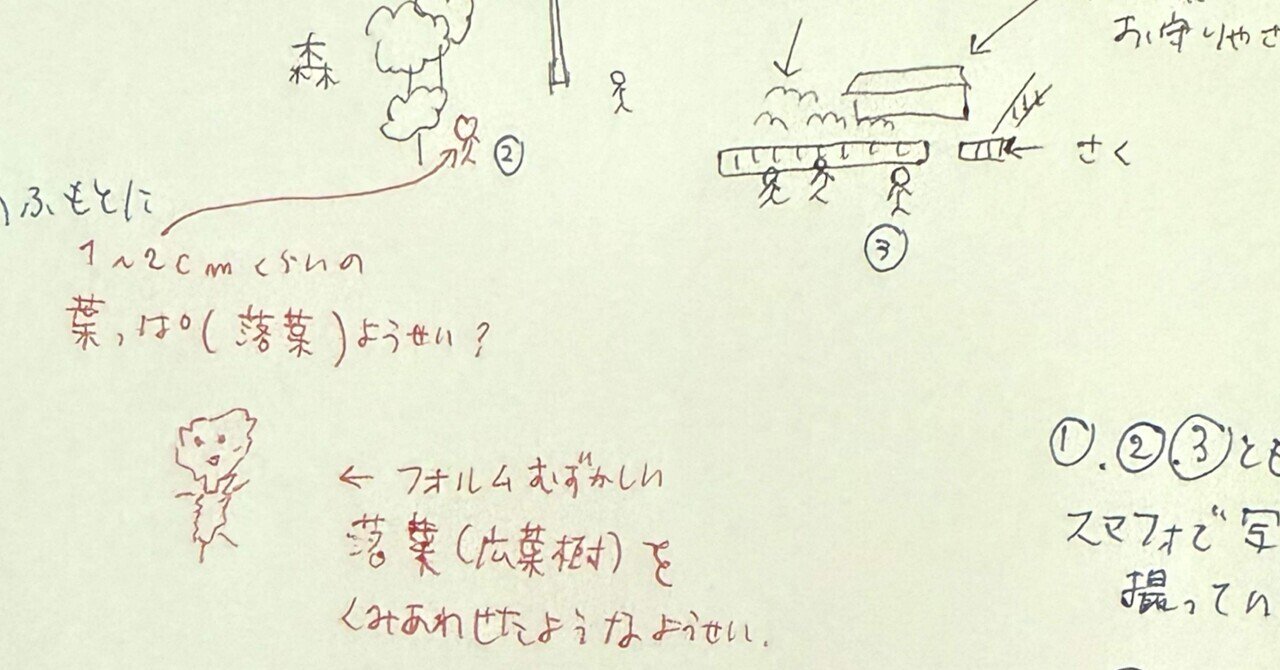 お守りやさ
森
②
さく
③
ふもとに
1~2cmくらいの
葉っぱ(落葉)ようせい?
← フォルムむずかしい
落葉(広葉樹)を
くみあわせたようなようせい.
①.②.③とも
スマフォで写
撮ってい